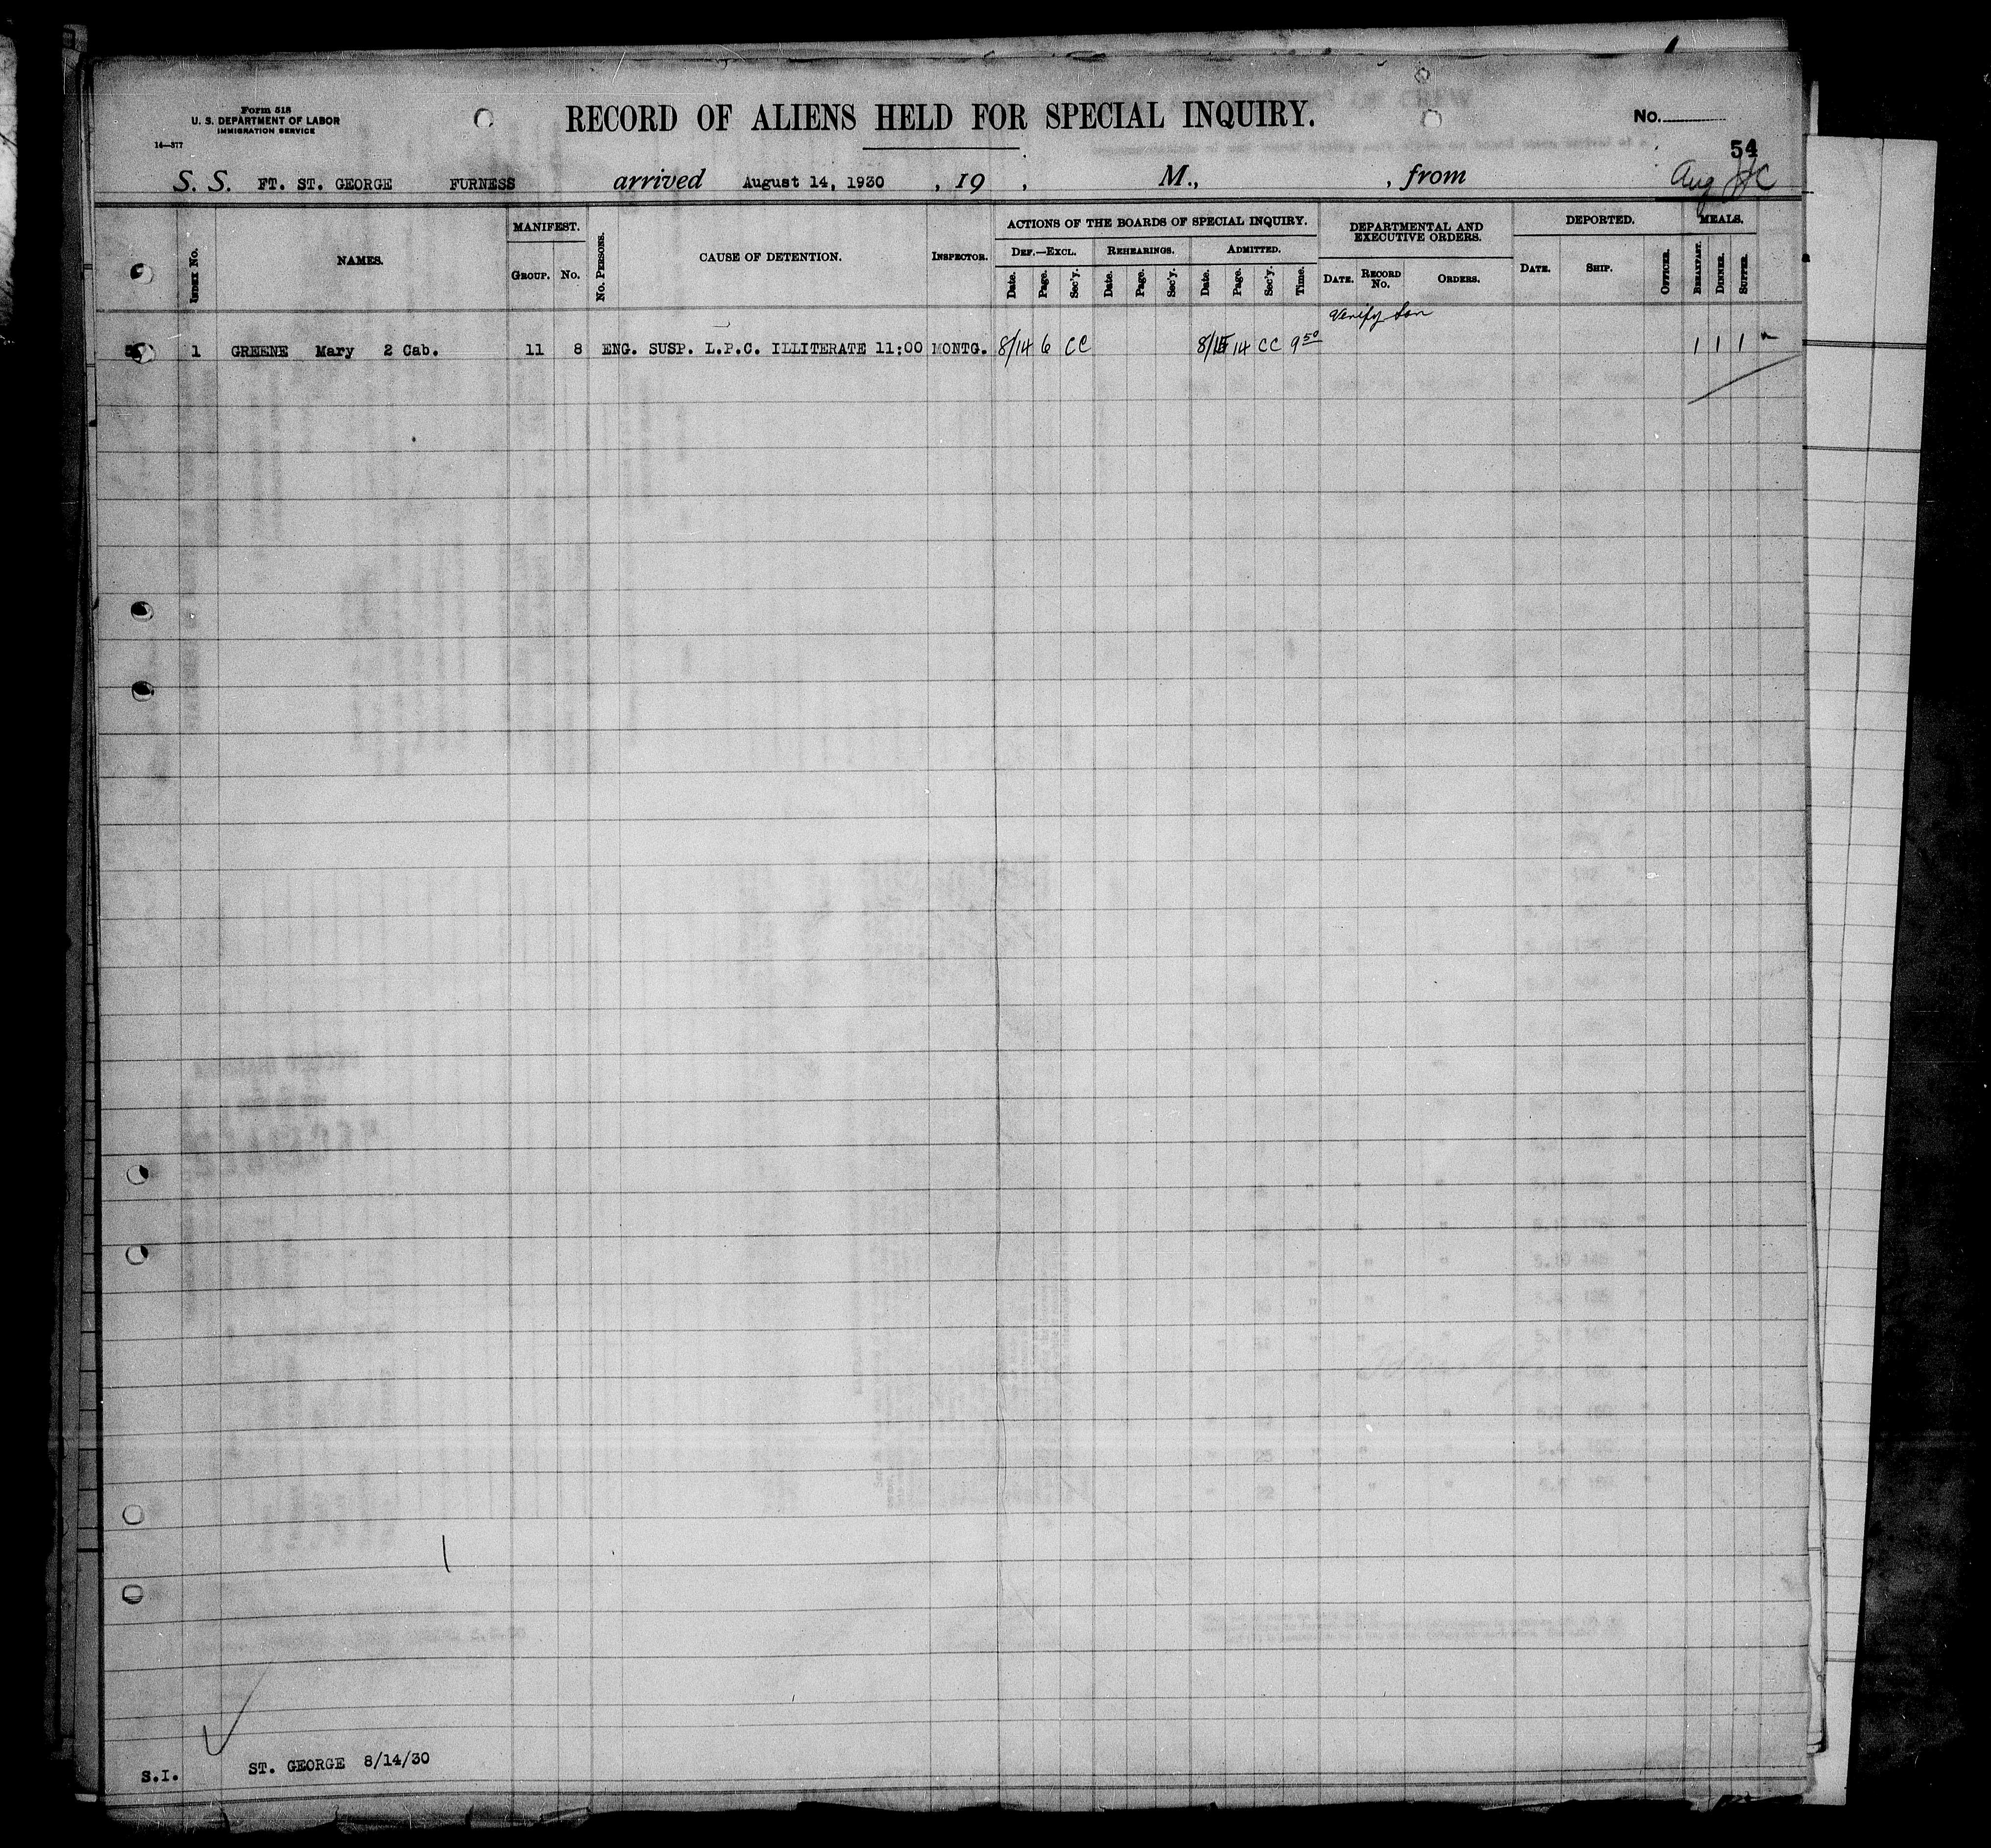 Form 518
U. S. DEPARTMENT OF LABOR
IMMIGRATION SERVICE
14—377
RECORD OF ALIENS HELD FOR SPECIAL INQUIRY.
No.
54
S. S. FT. ST. GEORGE FURNESS arrived August 14, 1930 , 19 , M., , from Aug
INDEX No. NAMES. MANIFEST. GROUP. No. No. PERSONS. CAUSE OF DETENTION. INSPECTOR.
ACTIONS OF THE BOARDS OF SPECIAL INQUIRY.
DEF.—EXCL. Date. Page. Sec'y. REHEARINGS. Date. Page. Sec'y. ADMITTED. Date. Page. Sec'y. Time.
DEPARTMENTAL AND EXECUTIVE ORDERS. DATE. RECORD No. ORDERS.
DEPORTED. DATE. SHIP. OFFICER.
MEALS. BREAKFAST. DINNER. SUPPER.
Verify Son
1 GREENE Mary 2 Cab. 11 8 ENG. SUSP. L.P.C. ILLITERATE 11:00 MONTG. 8/14 6 CC 8/15 14 CC 9 50 1 1 1
S.I. ST. GEORGE 8/14/30